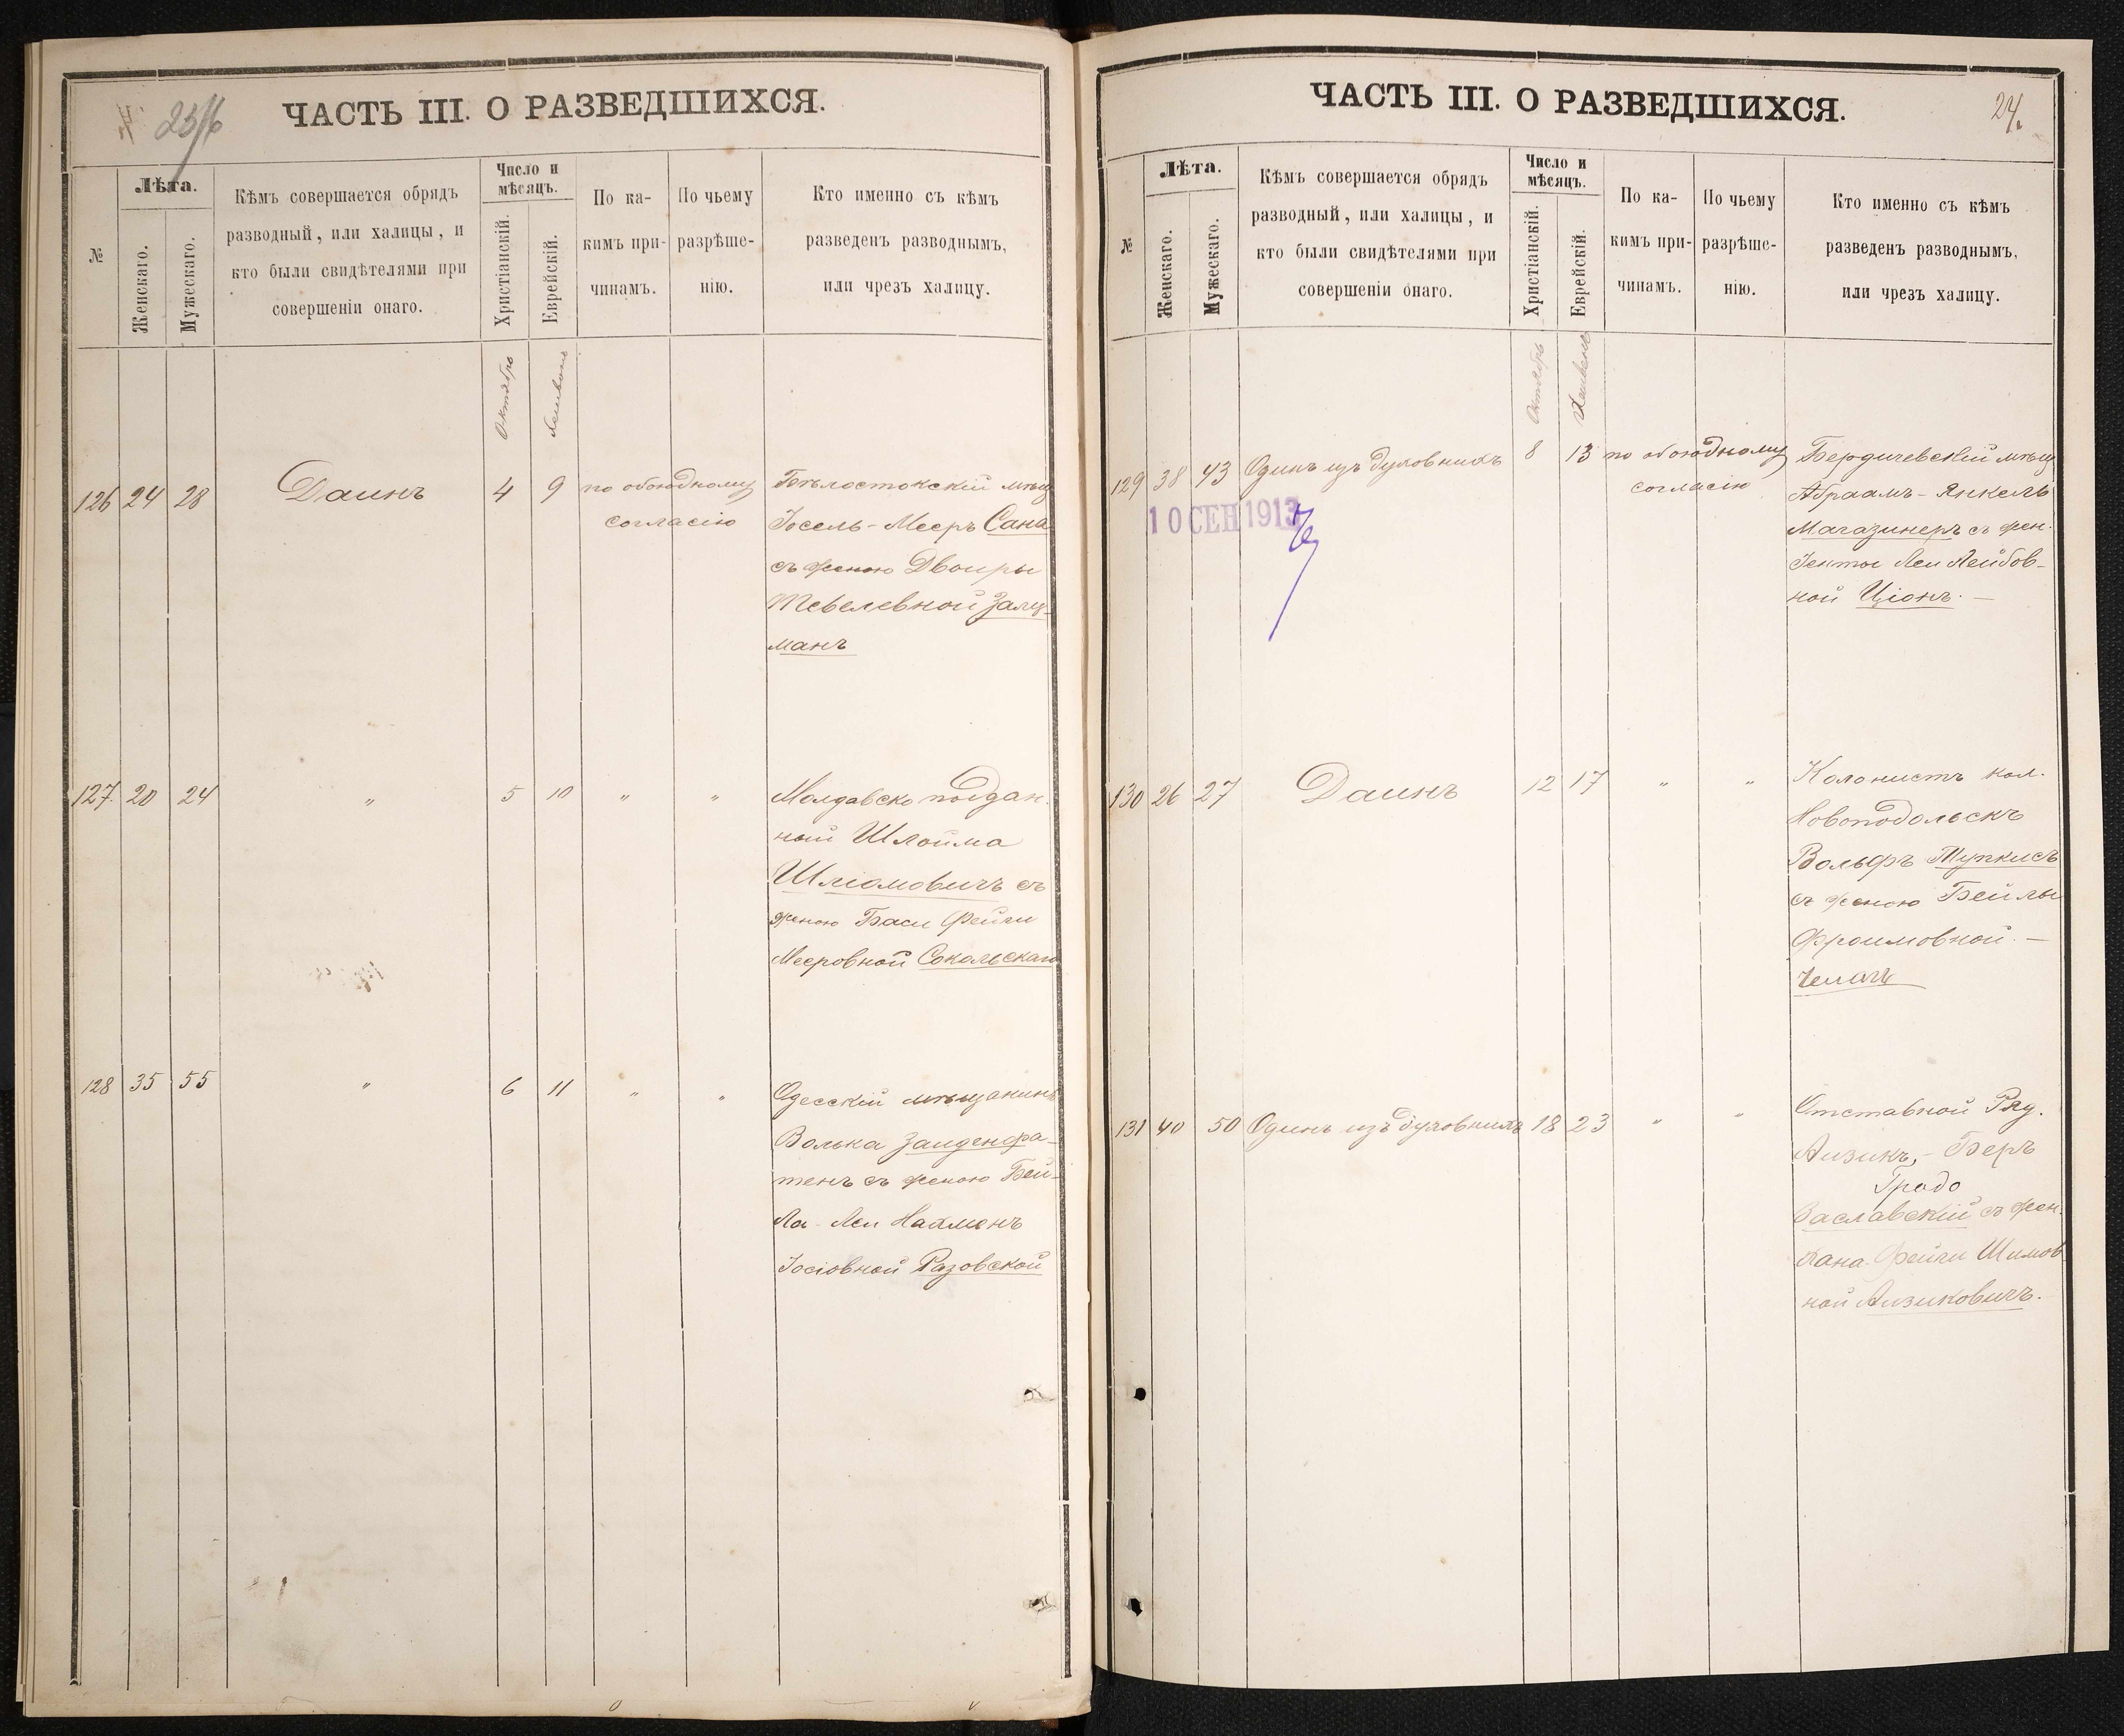 ЧАСТЬ III. О РАЗВЕДШИХСЯ.
№
Лѣта.
Женскаго.
Мужескаго.
Кѣмъ совершается обрядъ
разводный, или халицы, и
кто были свидѣтелями при
совершеніи онаго.
Число и
мѣсяцъ.
Христіанскій.
Еврейскій.
По ка-
кимъ при-
чинамъ.
По чьему
разрѣше-
нію.
Кто именно съ кѣмъ
разведенъ разводнымъ,
или чрезъ халицу.
Октябрь
126 24 28 Даинъ 4 9 по обоюдному
согласію
Бѣлостокскій мѣщ
Іосель-Мееръ Сана
съ женою Двойры
Тевелевной Залц-
манъ
127 20 24 " 5 10 " "
Молдавско поддан.
ный Шлойма
Шліомовичъ съ
женою Баси Фейги
Мееровной Сокольскаго
128 35 55 " 6 11 " "
Одесскій мѣщанинъ
Волька Зайденфа-
тенъ съ женою Бей-
ла-Леи Нахменъ
Іосіовной Разовской
ЧАСТЬ III. О РАЗВЕДШИХСЯ.
24.
№
Лѣта.
Женскаго.
Мужескаго.
Кѣмъ совершается обрядъ
разводный, или халицы, и
кто были свидѣтелями при
совершеніи онаго.
Число и
мѣсяцъ.
Христіанскій.
Еврейскій.
По ка-
кимъ при-
чинамъ.
По чьему
разрѣше-
нію.
Кто именно съ кѣмъ
разведенъ разводнымъ,
или чрезъ халицу.
Октябрь
129 38 43 Одинъ изъ духовныхъ 8 13 по обоюдному
согласію
10 СЕН 1913
Бердичевскій мѣщ
Абраамъ-Янкель
Магазинеръ съ жен.
Іентой Леи Лейбов-
ной Ціонъ. —
130 26 27 Даинъ 12 17 " "
Колонистъ кол.
Новоподольскъ
Вольфъ Тупкисъ
съ женою Бейлы
Фроимовной. —
131 40 50 Одинъ изъ духовныхъ 18 23 " "
Отставной Ряд.
Аизикъ,- Беръ
Градо
Заславскій съ жен.
Хана-Фейги Шимов
ной Аизиковичъ.